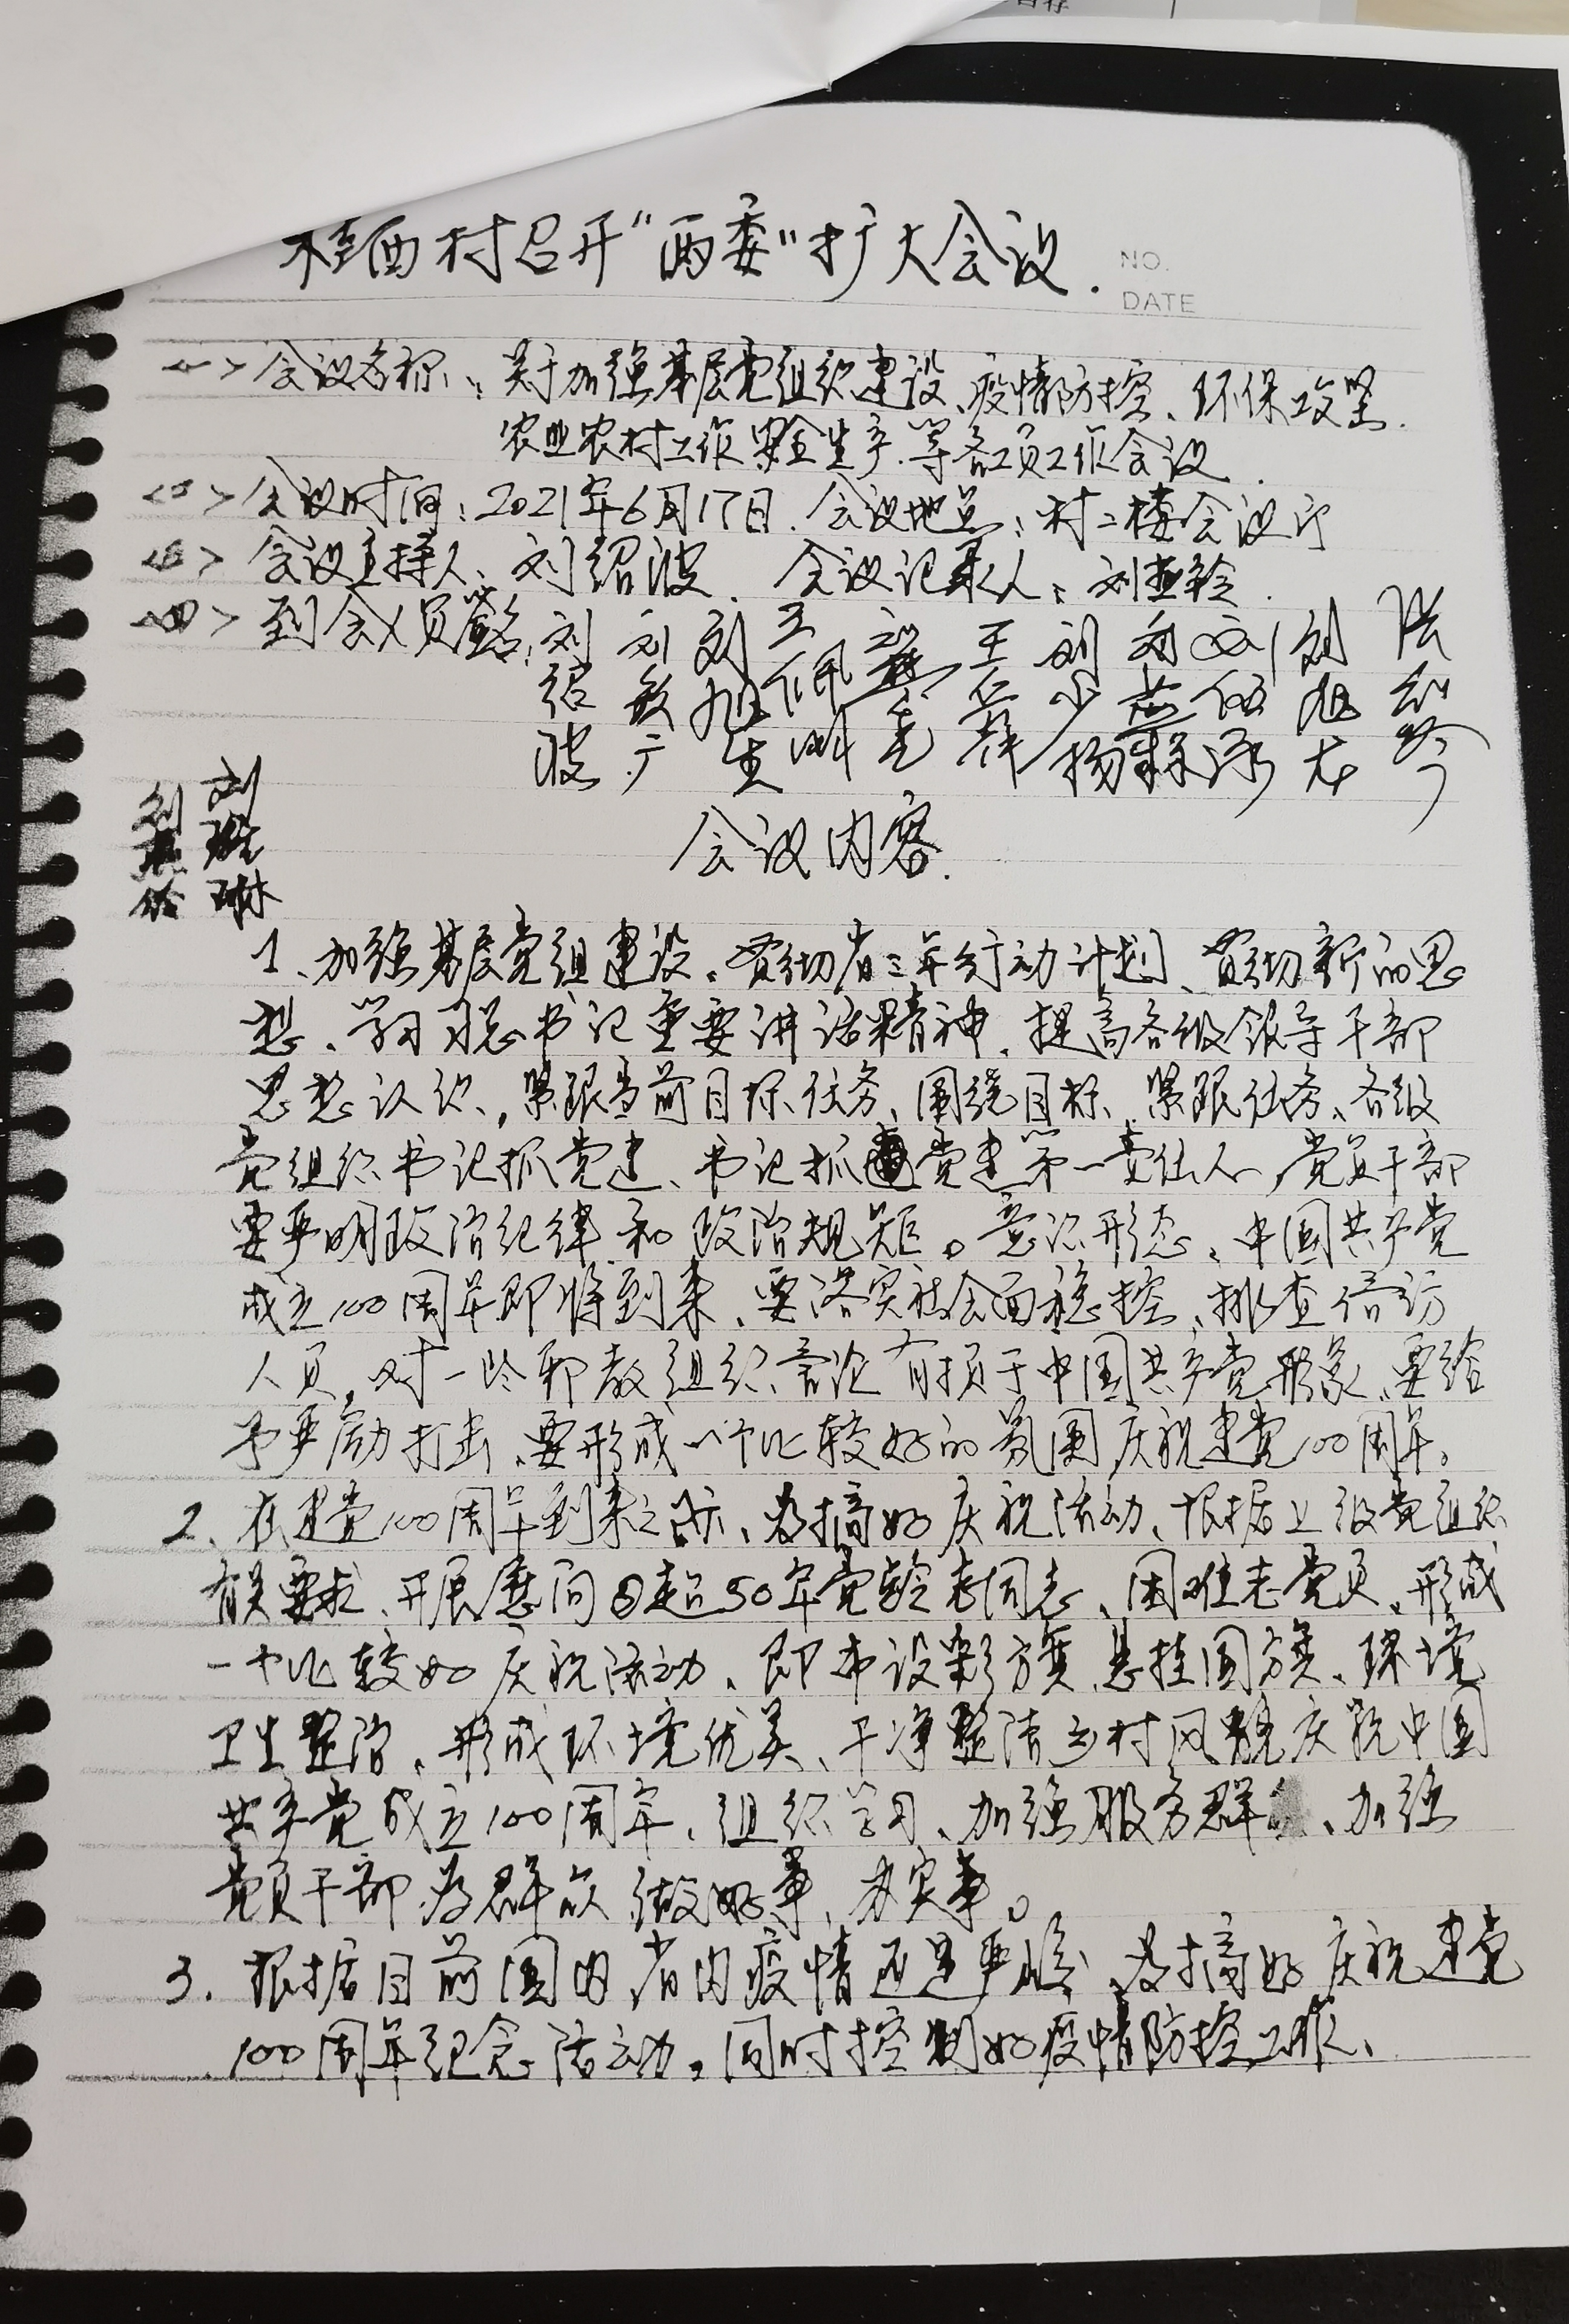 桂西村召开“两委”扩大会议.
NO.
DATE
<一>会议名称:关于加强基层党组织建设、疫情防控、环保攻坚.
农业农村工作 安全生产.等各项工作会议.
<二>会议时间:2021年6月17日.会议地点:村二楼会议厅
<三>会议主持人、刘绍波. 会议记录人:刘
<四>到会人员签名:
刘绍波
刘敏广
刘旭生
王佩
王仁群
刘少杨
刘旭龙
张
刘琳
会议内容.
1、加强基层党组建设。贯彻省三年行动计划、贯彻新的思
想、学习习总书记重要讲话精神.提高各级领导干部
思想认识,紧跟当前目标任务、围绕目标、紧跟任务、各级
党组织书记抓党建、书记抓党建第一责任人,党员干部
要严明政治纪律和政治规矩。意识形态、中国共产党
成立100周年即将到来、要落实社会面稳控、排查信访
人员,对一些邪教组织言论有损于中国共产党形象、要给
予严厉打击、要形成一个比较好的氛围庆祝建党100周年。
2、在建党100周年到来之际、为搞好庆祝活动、根据上级党组织
有关要求、开展慰问超50年党龄老同志、困难老党员、形成
一个比较好庆祝活动、即布设彩旗、悬挂国旗、环境
卫生整治、形成环境优美、干净整洁乡村风貌庆祝中国
共产党成立100周年、组织学习、加强服务群、加强
党员干部为群众做好事,办实事。
3.根据目前国内省内疫情还是严峻、为搞好庆祝建党
100周年纪念活动。同时控制好疫情防控工作、